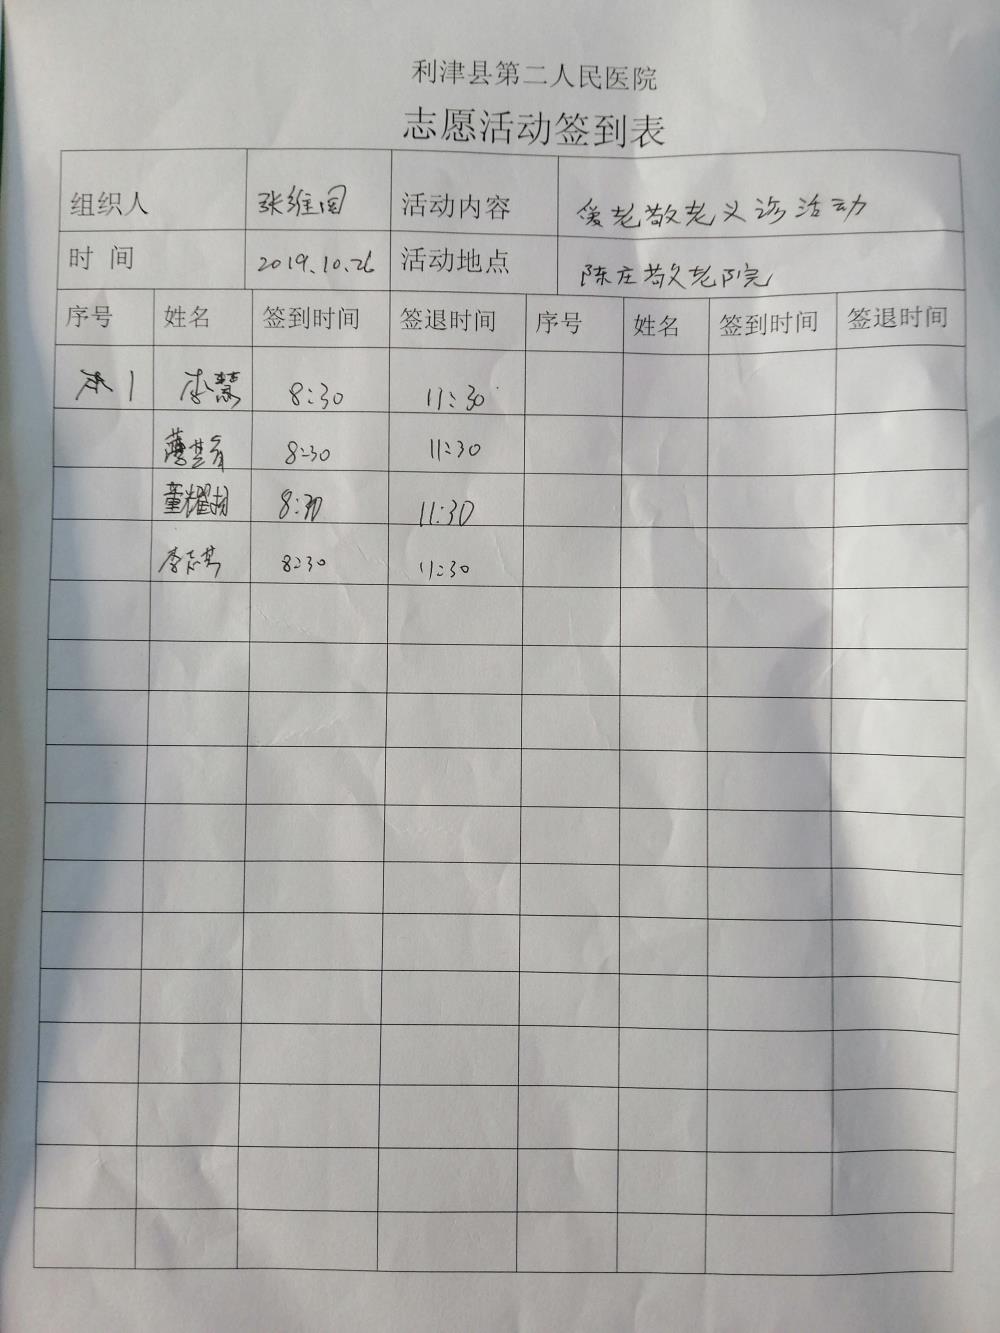 利津县第二人民医院
志愿活动签到表
组织人 张维国 活动内容 爱老敬老义诊活动
时 间 2019.10.26 活动地点 陈庄敬老院
序号 姓名 签到时间 签退时间 序号 姓名 签到时间 签退时间
1 李慧 8:30 11:30
8:30 11:30
8:30 11:30
8:30 11:30